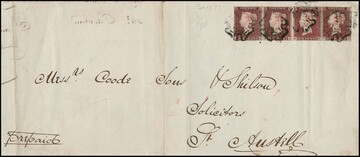 Messrs Coode Sons & Shilson
Solicitors
St. Austell
Prepaid